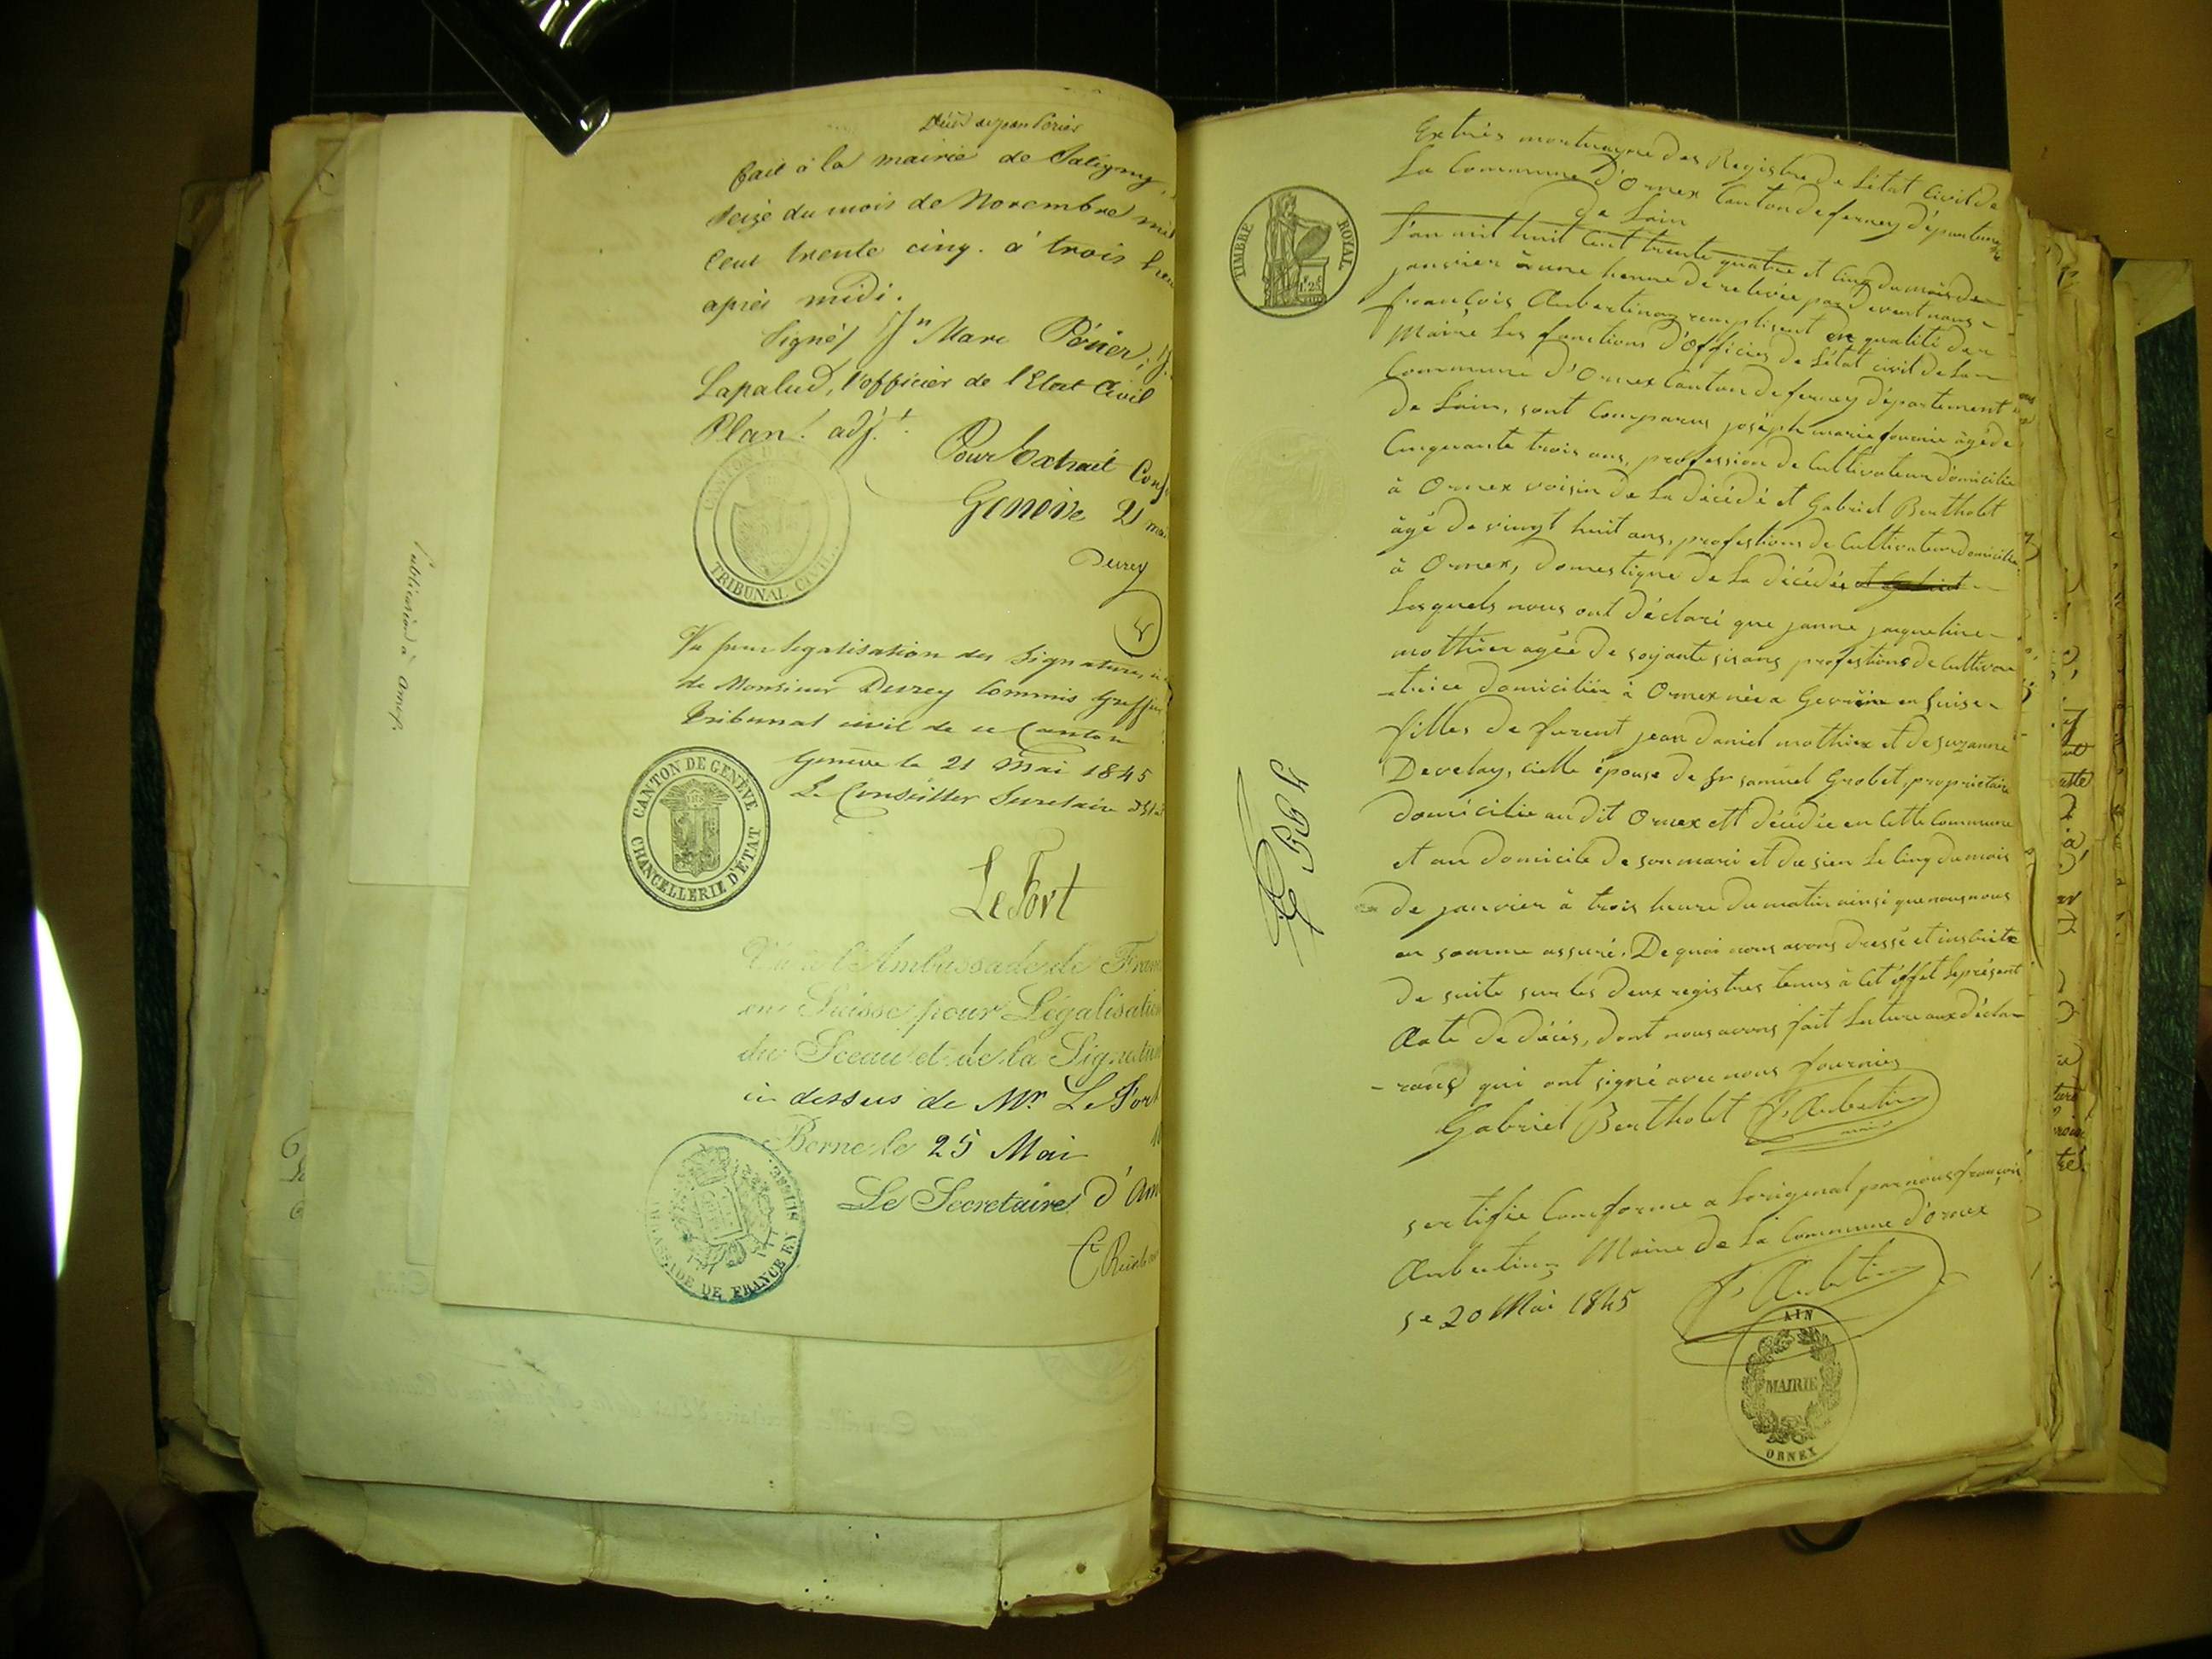 Décès de Jean Perier
fait à la mairie de Satigny,
seize du mois de Novembre mil
Cent trente cinq. à trois heu
après midi.
Signés Jn Marc Périer,
Lapalud, l'officier de l'Etat Civil
Plant. adj.t.
Pour Extrait Conf
Genève 21 mai
Durey
CANTON DE
TRIBUNAL CIVIL
Vu pour légalisation des Signatures
de Monsieur Durey Commis Greffier
Tribunal civil de ce Canton
Genève le 21 Mai 1845
Le Conseiller Secrétaire d'Etat
CANTON DE GENÈVE
CHANCELLERIE D'ÉTAT
Le Fort
Vu à l'Ambassade de France
en Suisse pour Légalisation
du Sceau et de la Signature
ci dessus de Mr. Le Fort
Berne le 25 Mai
Le Secretaire d'Am
AMBASSADE DE FRANCE EN SUISSE
Publication à Ornex.
TIMBRE ROYAL
1 F. 25
Extrès mortuayre des Registre de L'état Civil de
La Commune d'Ornex Canton de ferney département
De Lain
L'an mil huit Cent trente quatre et cinq du mois de
janvier à une heure de relevée par devent nous
françois Aubertin remplisent en qualité de
Maire Les fonctions d'Officier de L'état civil de La
Commune d'Ornex Canton de ferney département
De L'ain, sont Comparus joséph marie fournier âgé de
Cinquante trois ans, profession de Cultivateur domicilié
à Ornex voisin de La décédé et Gabriel Bertholet
âgé de vingt huit ans, profestions de Cultivateur domicillié
à Ornex, domestique de La décédée
Lesquels nous ont déclaré que janne jaqueline
mothier agée de soijante sis ans profestions de Cultiva
-trice domiciliée à Ornex née a en Suise
filles de furent jean daniel mothier et de suzanne
Develay, cielle épouse de sr samuel Grobet, propriétaire
domicilié au dit Ornex est décédée en Cette Commune
et au domicile de son mari et du sien Le Cinq du mois
de janvier à trois heure du matin ainsi que nous nous
en somme assuré. De quoi nous avons dressé et inscrite
de suite sur les deux registres tenus à Cet éffet Le présent
Acte de décès, dont nous avons fait Lecture aux décla-
-rans qui ont signé avec nous fournier
Gabriel Bertholet F. Aubertin
maire
sertifié Comforme a Loriginal par nous françois
Aubertin Maire de La Commune d'ornex
Le 20 Mai 1845 F. Aubertin
AIN
MAIRIE
ORNEX